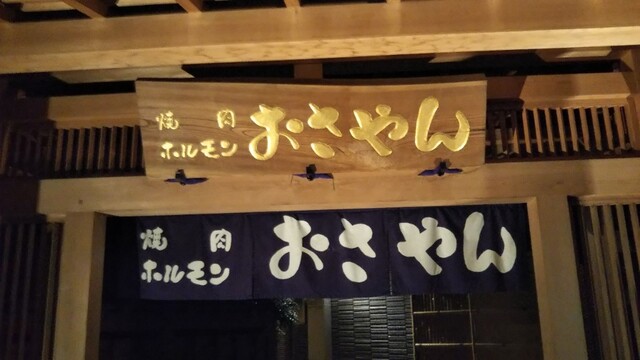 焼肉
ホルモン
おさやん
焼肉
ホルモン
おさやん